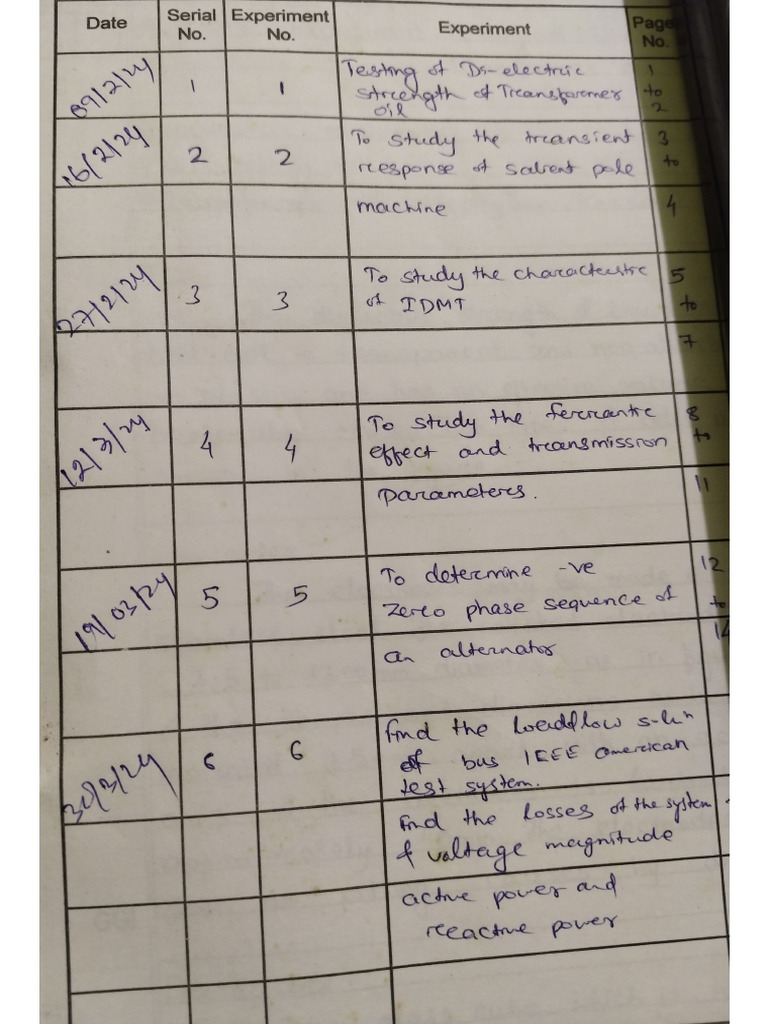 Date Serial No. Experiment No. Experiment Page No.
09/2/24 1 1 Testing of Di-electric 1
strength of Transformer to
oil 2
16/2/24 2 2 To study the transient 3
response of salient pole to
machine 4
27/2/24 3 3 To study the characteristic 5
of IDMT to
7
12/3/24 4 4 To study the ferrantic 8
effect and transmission to
parameters. 11
19/03/24 5 5 To determine -ve 12
zero phase sequence of to
an alternator 14
30/3/24 6 6 find the loadflow
of bus IEEE American
test system.
find the losses of the system
& voltage magnitude
active power and
reactive power